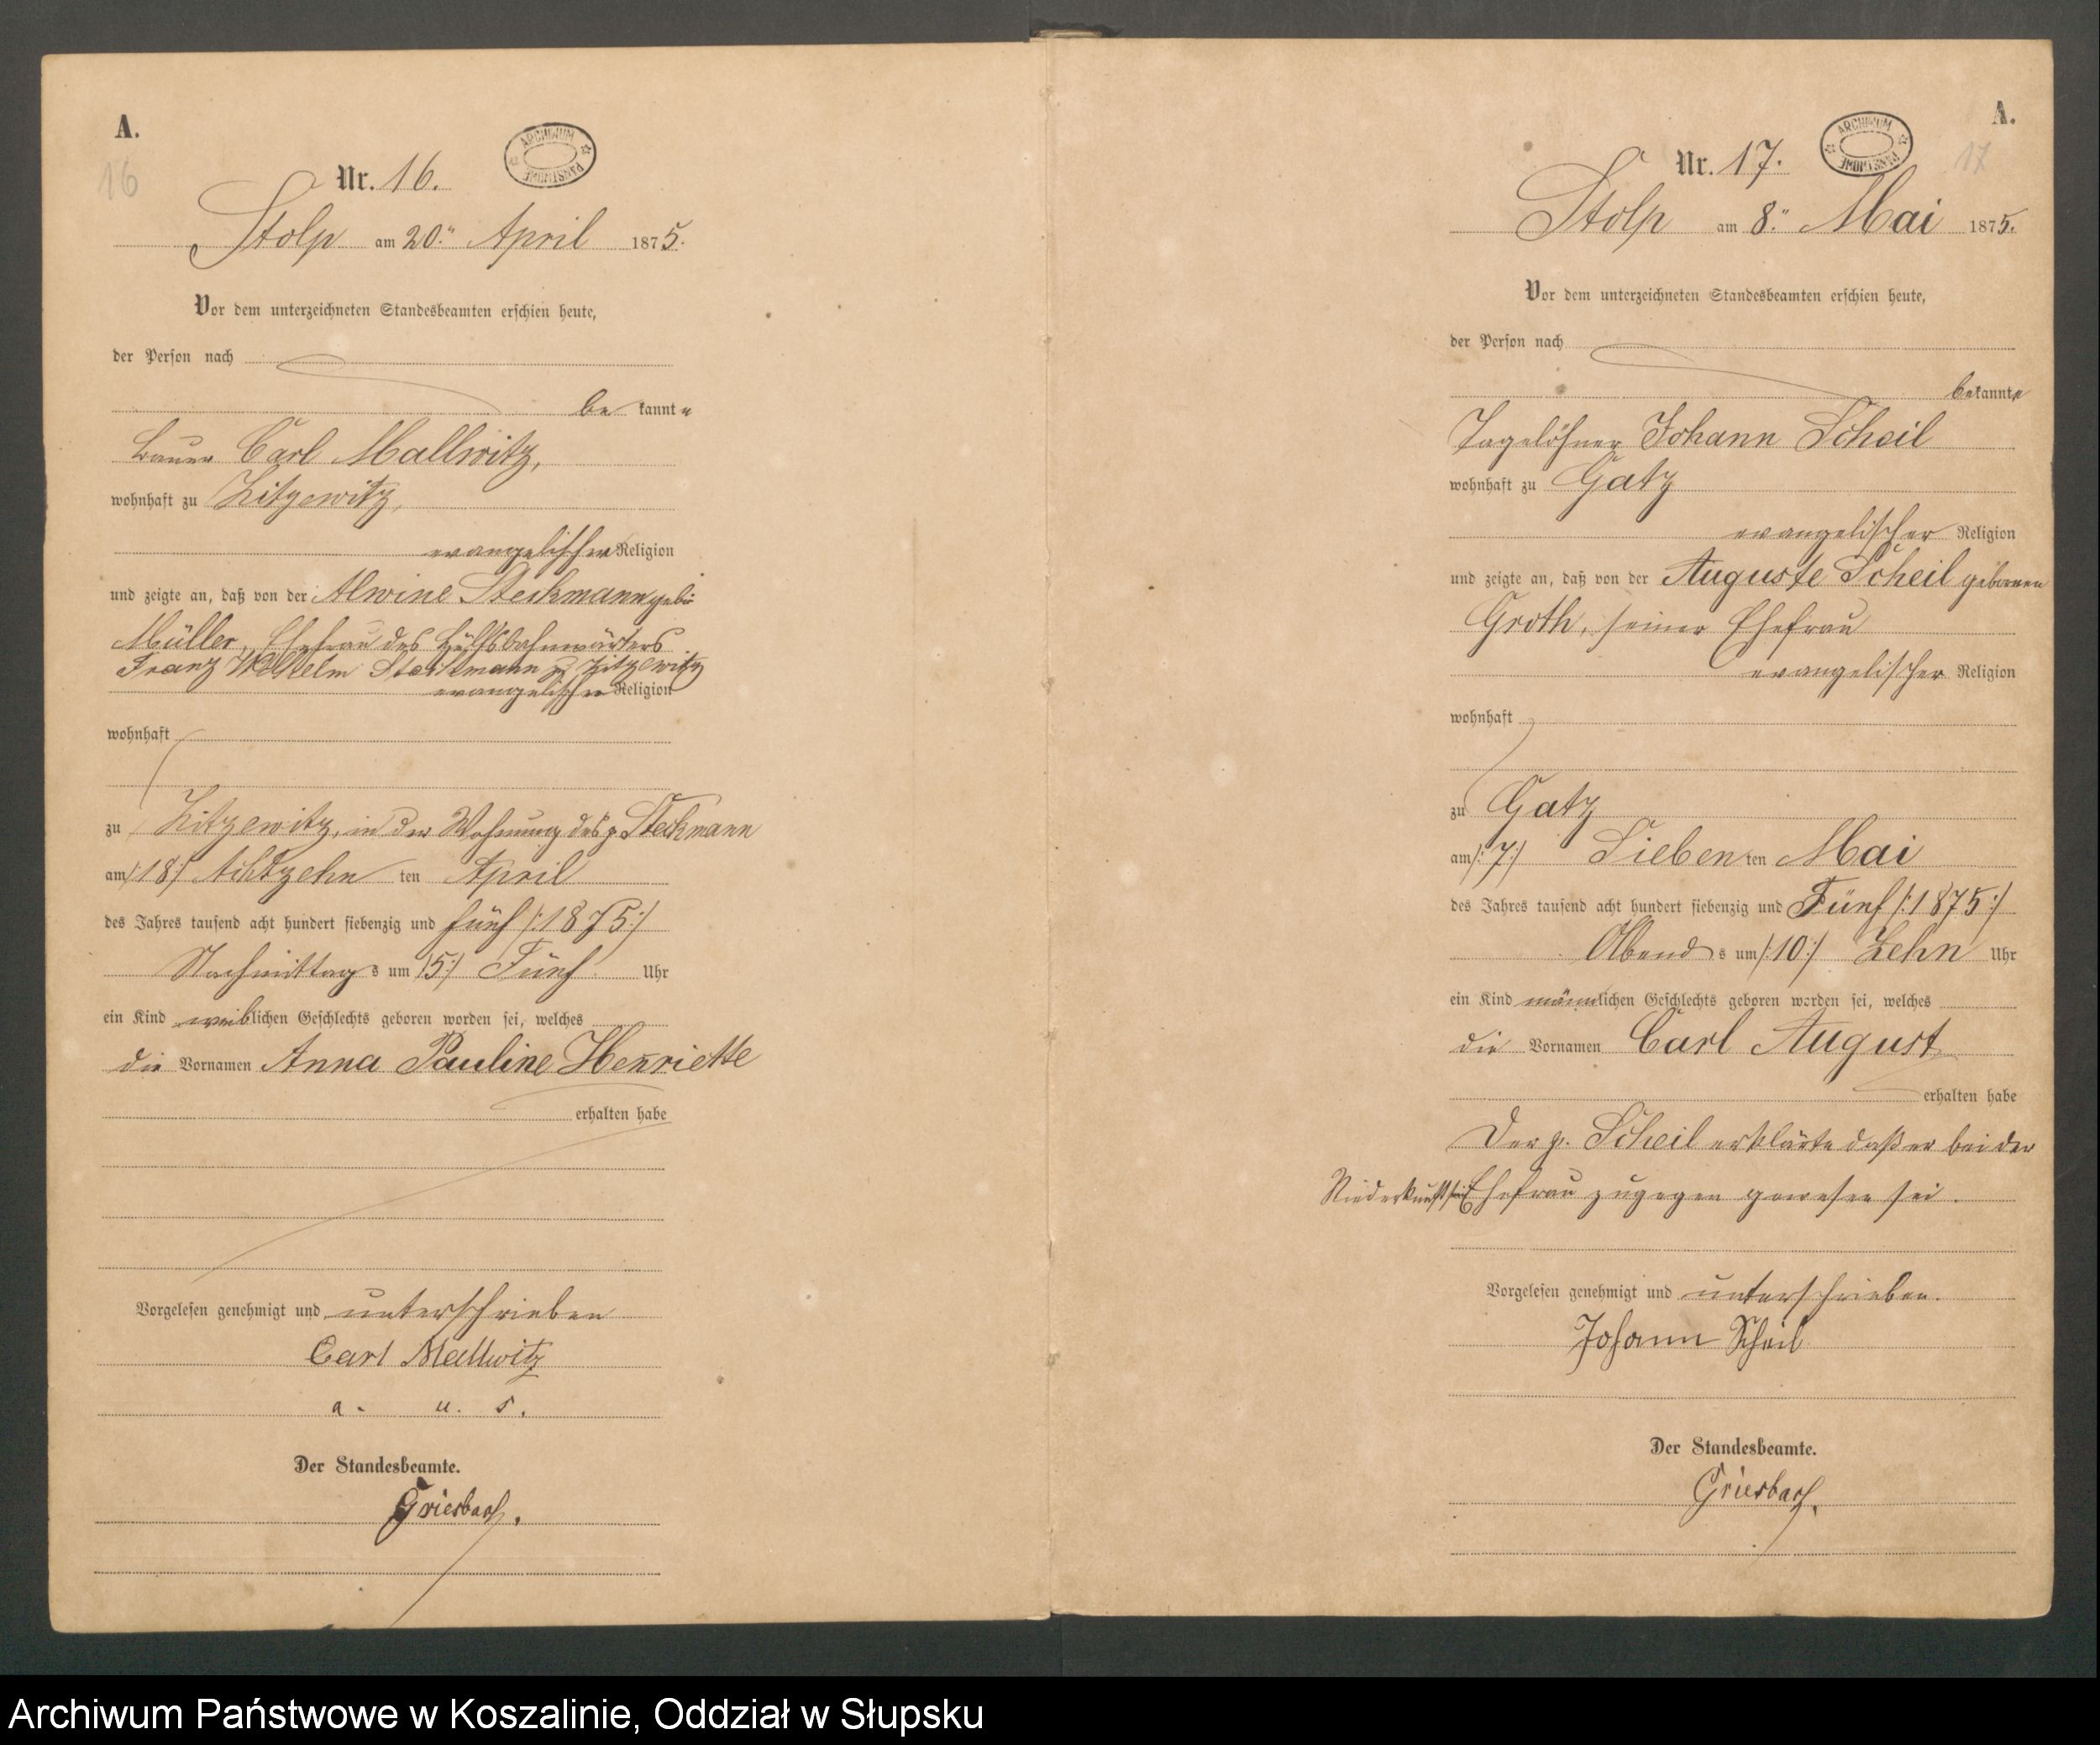 A.
16
ARCHIWUM PAŃSTWOWE
Nr. 16.
Stolp am 20ten April 1875.
Vor dem unterzeichneten Standesbeamten erschien heute,
der Person nach
be kannte
Bauer Carl Mallwitz,
wohnhaft zu Zitzewitz,
evangelischer Religion
und zeigte an, daß von der Alwine Steckmann geb.
Müller, Ehefrau des Hülfsbahnwärters
Franz Wilhelm Steckmann zu Zitzewitz
evangelischer Religion
wohnhaft
zu Zitzewitz, in der Wohnung des p. Steckmann
am /:18:/ Achtzehn ten April
des Jahres tausend acht hundert siebenzig und fünf /:1875:/
Nachmittag s um /:5:/ Fünf Uhr
ein Kind weiblichen Geschlechts geboren worden sei, welches
die Vornamen Anna Pauline Henriette
erhalten habe
Vorgelesen genehmigt und unterschrieben
Carl Mallwitz
a. u. s.
Der Standesbeamte.
Griesbach.
A.
17
ARCHIWUM PAŃSTWOWE
Nr. 17.
Stolp am 8ten Mai 1875.
Vor dem unterzeichneten Standesbeamten erschien heute,
der Person nach
bekannte
Tagelöhner Johann Scheil
wohnhaft zu Gatz
evangelischer Religion
und zeigte an, daß von der Auguste Scheil geborenen
Groth, seiner Ehefrau
evangelischer Religion
wohnhaft
zu Gatz
am /:7:/ Sieben ten Mai
des Jahres tausend acht hundert siebenzig und Fünf /:1875:/
Abend s um /:10:/ Zehn Uhr
ein Kind männlichen Geschlechts geboren worden sei, welches
die Vornamen Carl August
erhalten habe
Der p. Scheil erklärte daß er bei der
Niederkunft sein. Ehefrau zugegen gewesen sei.
Vorgelesen genehmigt und unterschrieben.
Johann Scheil
Der Standesbeamte.
Griesbach.
Archiwum Państwowe w Koszalinie, Oddział w Słupsku